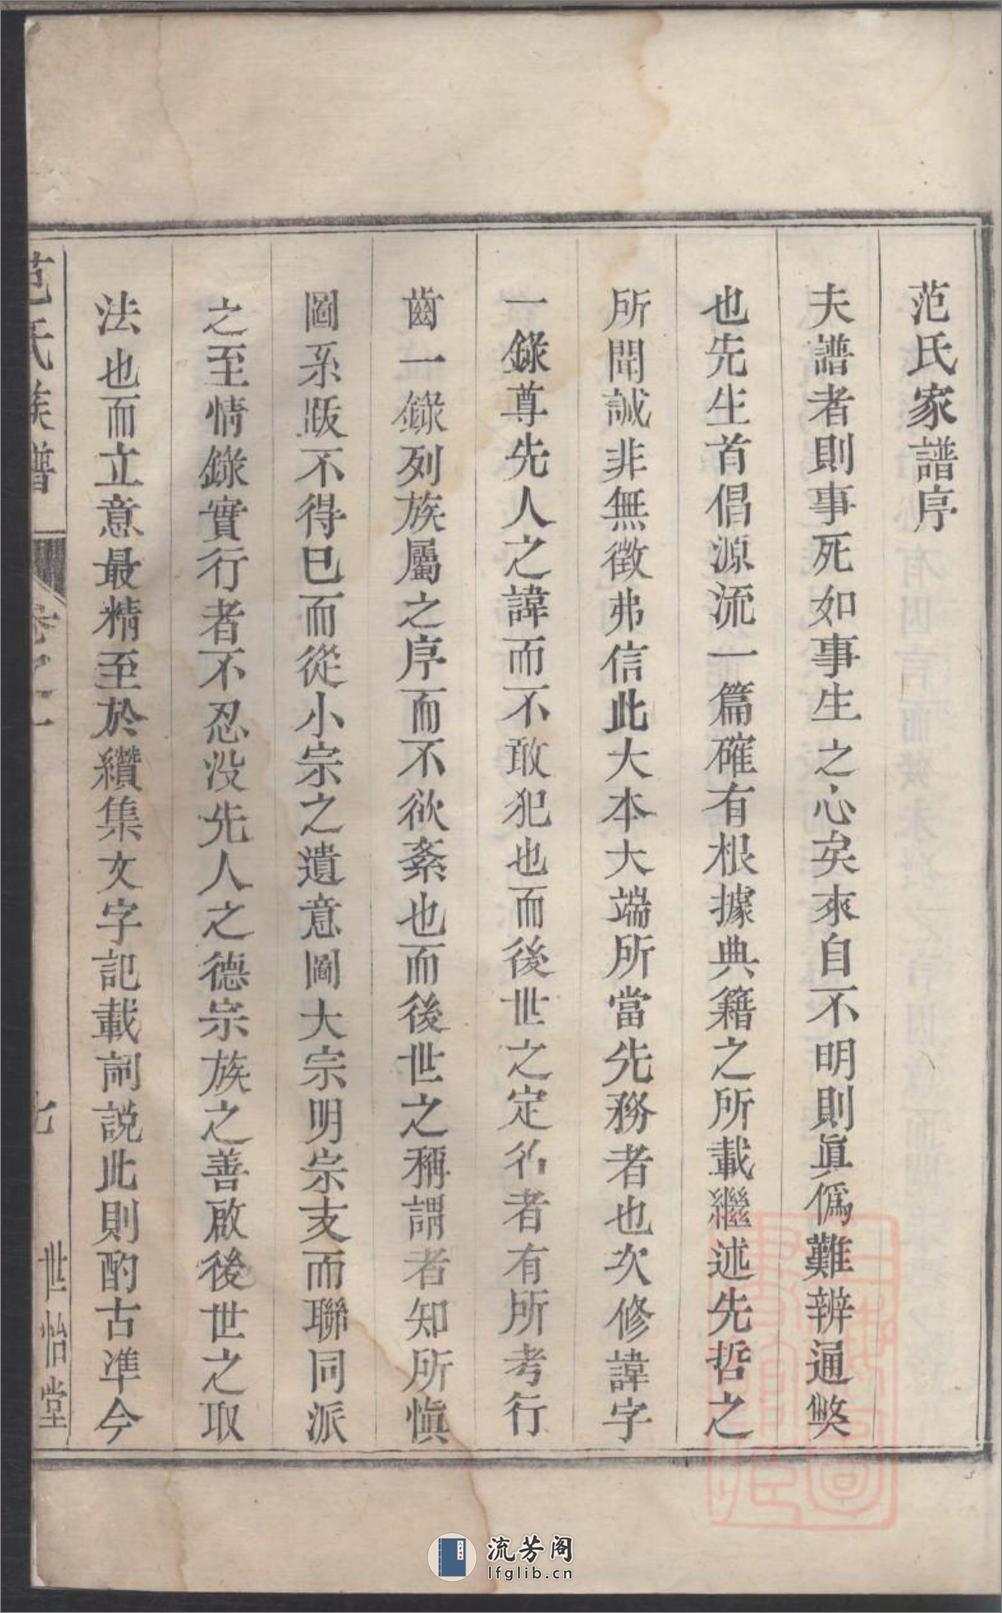 范氏家譜序
夫譜者則事死如事生之心矣來自不明則眞僞難辨通弊
也先生首倡源流一篇確有根據典籍之所載繼述先哲之
所聞誠非無徵弗信此大本大端所當先務者也次修諱字
一錄尊先人之諱而不敢犯也而後世之定名者有所考行
齒一錄列族屬之序而不欲紊也而後世之稱謂者知所愼
圖系跋不得已而從小宗之遺意圖大宗明宗支而聯同派
之至情錄實行者不忍沒先人之德宗族之善啟後世之取
法也而立意最精至於纘集文字記載詞說此則酌古準今
范氏族譜 卷之一 七 世怡堂
流芳阁
lfglib.cn